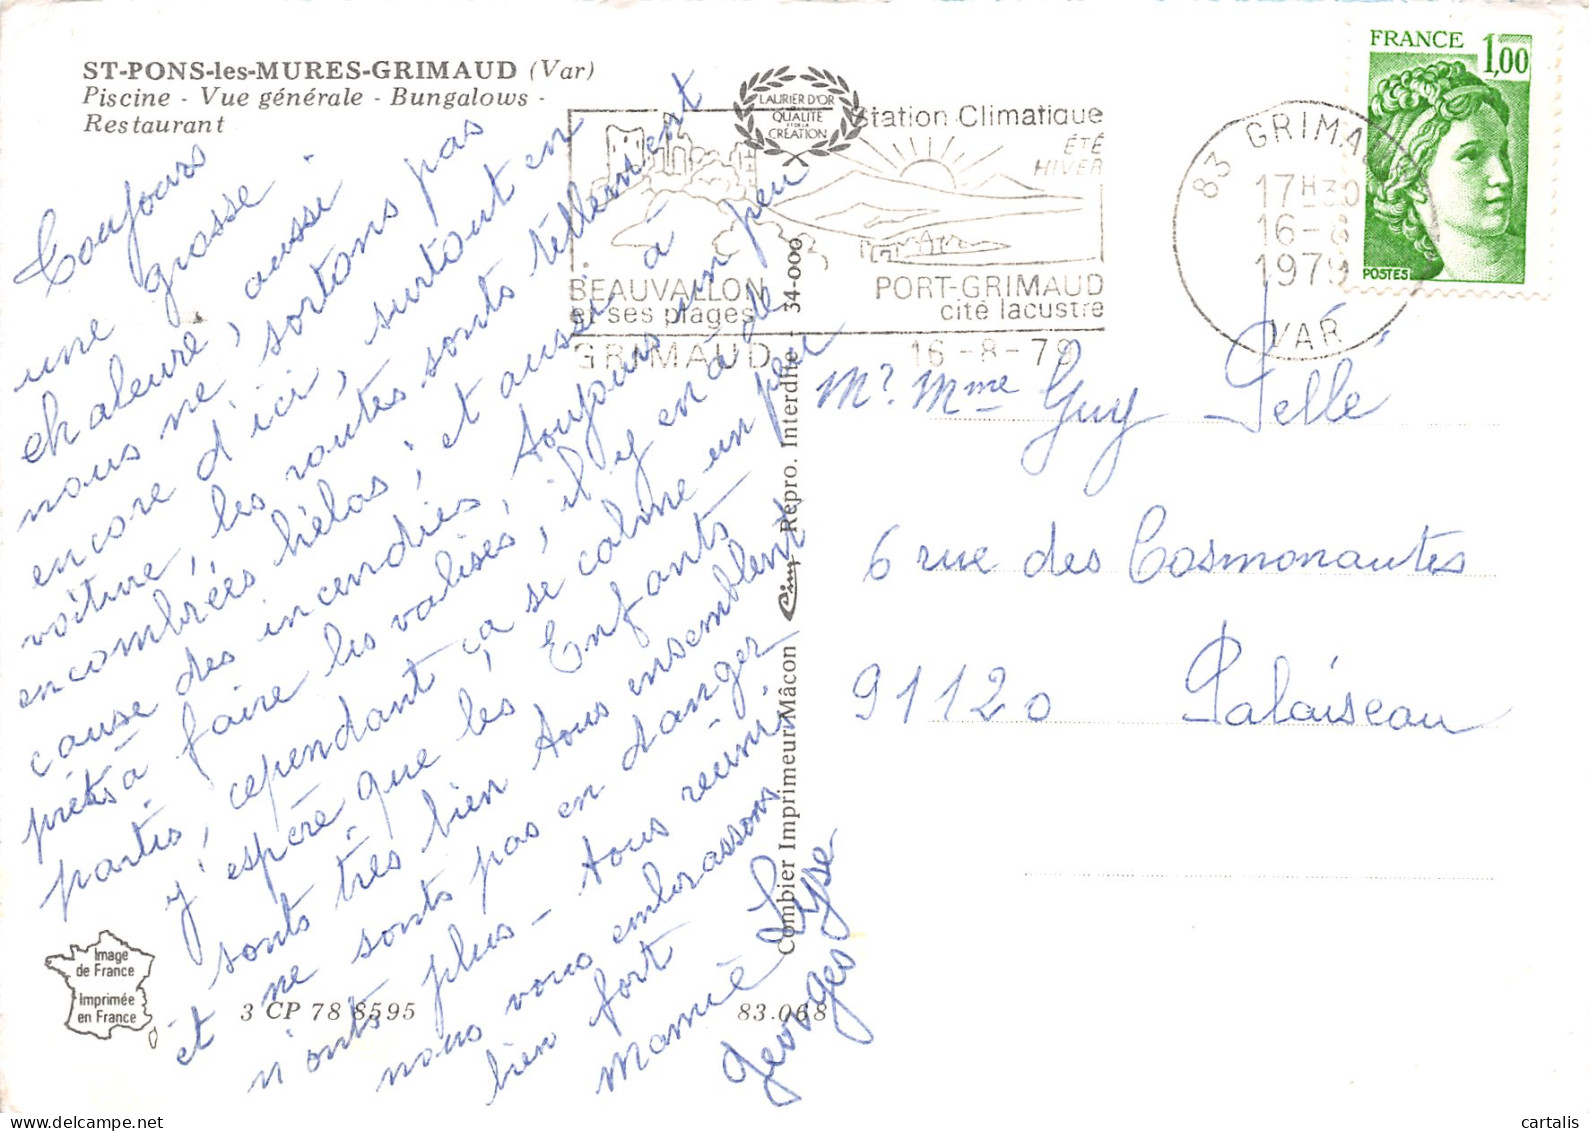 ST-PONS-les-MURES-GRIMAUD (Var)
Piscine - Vue générale - Bungalows -
Restaurant
Toujours
une grosse
chaleure, aussi
nous ne sortons pas
encore d'ici, surtout en
voiture, les routes sonts tellement
encombrées hélas; et aussi à
cause des incendies, toujours un peu
prétsà faire les valises, il y en à de
partis, cependant ça se calme un peu
j'espère que les Enfants
sonts très bien tous ensemblent
et ne sonts pas en danger
n'onts plus - tous reunir
nous vous embrassons
bien fort
Mamie Lyse
Georges
LAURIER D'OR
QUALITÉ
ET DE LA
CRÉATION
Station Climatique
ÉTÉ
HIVER
BEAUVALLON
et ses plages
PORT-GRIMAUD
cité lacustre
GRIMAUD 16-8-79
83 GRIMAUD
17H30
16-8
1979
VAR
FRANCE 1,00
POSTES
Mr. Mme Guy Pellé
6 rue des Cosmonautes
91120 Palaiseau
Combier Imprimeur Mâcon Cim Repro. Interdite 34-000
Image
de France
Imprimée
en France
3 CP 78 8595
83.068
cartalis
www.delcampe.net